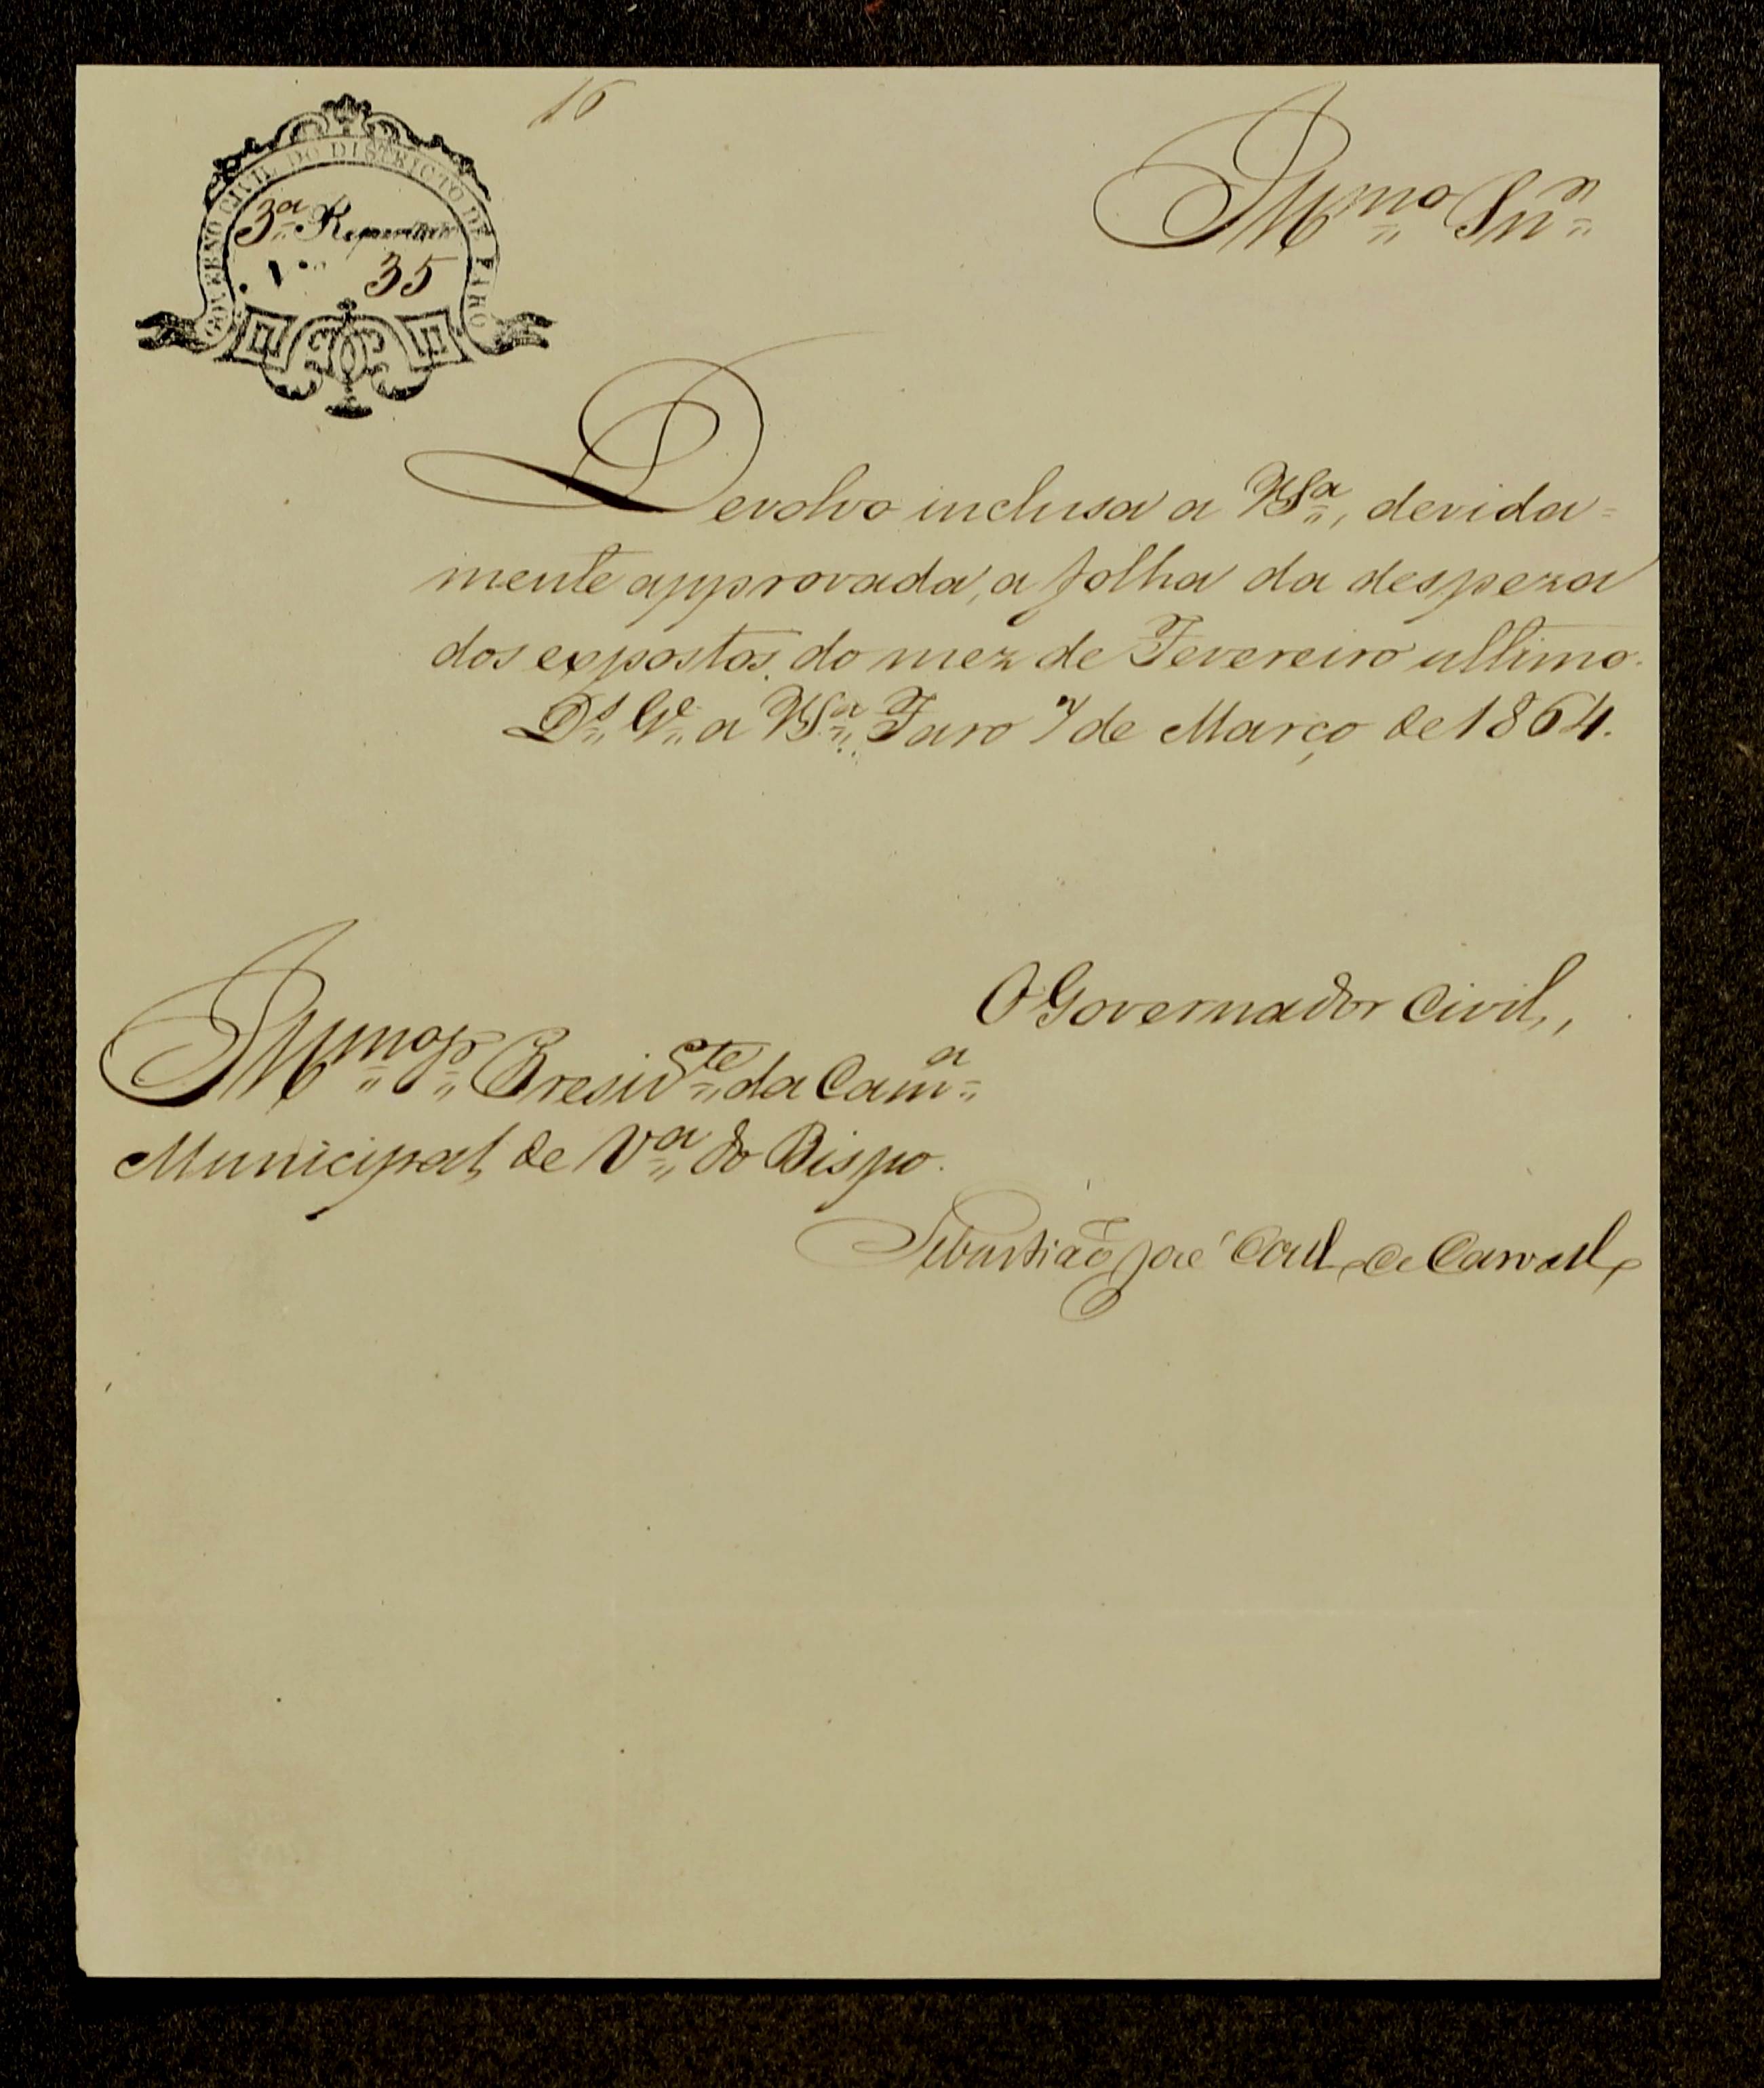 16
GOVERNO CIVIL DO DISTRICTO DE FARO
3ª Repartição
N.º 35
Illmo Snr
Devolvo inclusa a VSª, devida=
mente approvada, a folha da despeza
dos expostos do mez de Fevereiro ultimo.
Ds Ge a VSª Faro 7 de Março de 1864.
O Governador Civil,
Illmo Sr Presidte da Camª
Municipal de Vª do Bispo.
Sebastião José Coelho de Carvalho